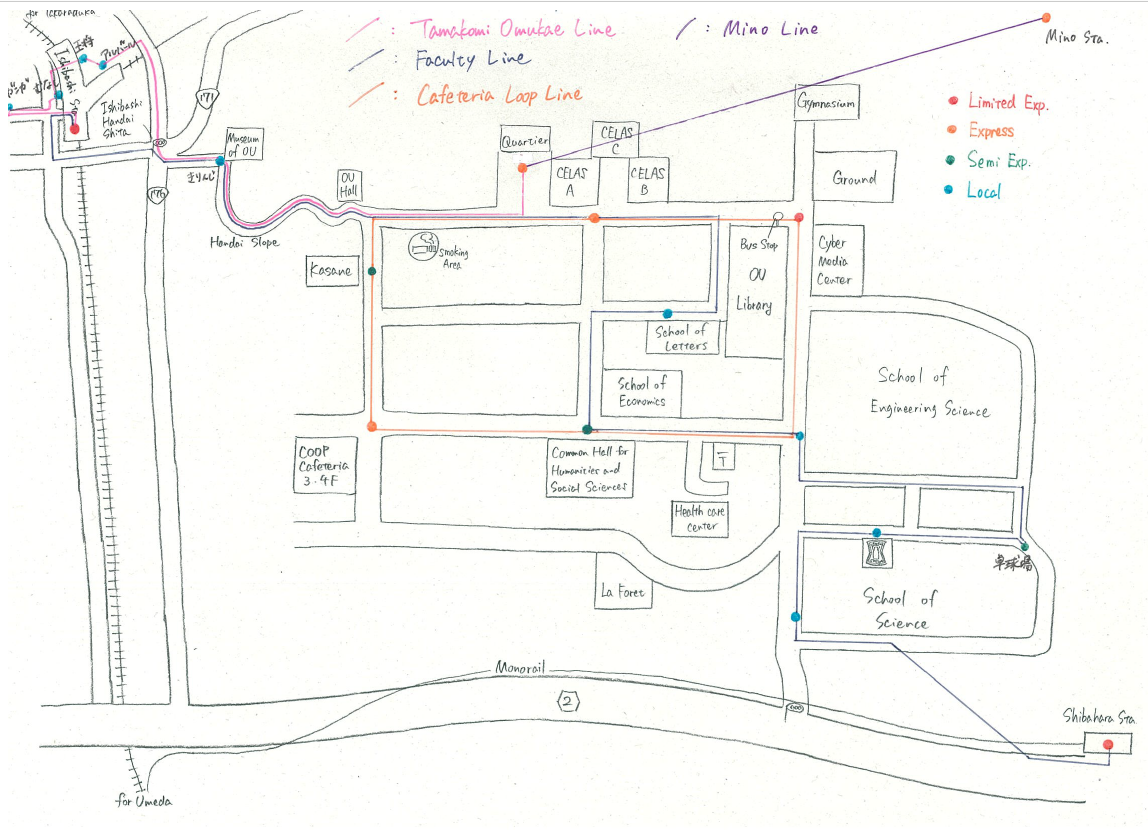 for Ishibashi
: Tamakomi Omukae Line
: Mino Line
: Faculty Line
: Cafeteria Loop Line
Mino Sta.
Limited Exp.
Express
Semi Exp.
Local
Ishibashi
Sta
Ishibashi
Handai
Shita
171
176
Museum
of OU
きりんじ
Handai Slope
OU
Hall
Quartier
CELAS
C
CELAS
A
CELAS
B
Gymnasium
Ground
Kasane
Smoking
Area
Bus Stop
OU
Library
Cyber
Media
Center
School of
Letters
School of
Economics
School of
Engineering Science
COOP
Cafeteria
3.4F
Common Hall for
Humanities and
Social Sciences
〒
Health care
center
La Foret
卓球場
School of
Science
Monorail
2
Shibahara Sta.
for Umeda